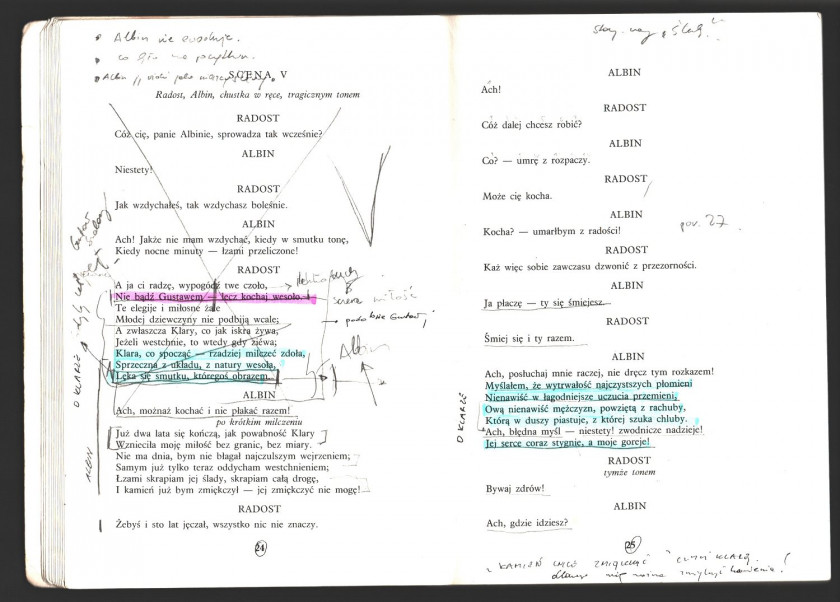 Albin nie
co
Albin //
SCENA V
Radost, Albin, chustka w ręce, tragicznym tonem
RADOST
Cóż cię, panie Albinie, sprowadza tak wcześnie?
ALBIN
Niestety!
RADOST
Jak wzdychałeś, tak wzdychasz boleśnie.
ALBIN
Ach! Jakże nie mam wzdychać, kiedy w smutku tonę,
Kiedy nocne minuty — łzami przeliczone!
RADOST
A ja ci radzę, wypogódź twe czoło,
Nie bądź Gustawem — lecz kochaj wesoło.
Te elegije i miłosne żale
Młodej dziewczyny nie podbiją wcale;
A zwłaszcza Klary, co jak iskra żywa,
Jeżeli westchnie, to wtedy gdy ziéwa;
Klara, co spocząć — rzadziej milczeć zdoła,
Sprzeczna z układu, z natury wesoła,
Lęka się smutku, któregoś obrazem.
miłość
Albin
O KLARZE
ALBIN
Ach, możnaż kochać i nie płakać razem!
po krótkim milczeniu
Już dwa lata się kończą, jak powabność Klary
Wznieciła moję miłość bez granic, bez miary.
Nie ma dnia, bym nie błagał najczulszym wejrzeniem;
Samym już tylko teraz oddycham westchnieniem;
Łzami skrapiam jej ślady, skrapiam całą drogę,
I kamień już bym zmiękczył — jej zmiękczyć nie mogę!
ALBIN
RADOST
Żebyś i sto lat jęczał, wszystko nic nie znaczy.
24
ALBIN
Ach!
RADOST
Cóż dalej chcesz robić?
ALBIN
Co? — umrę z rozpaczy.
RADOST
Może cię kocha.
ALBIN
Kocha? — umarłbym z radości!
por. 27
RADOST
Każ więc sobie zawczasu dzwonić z przezorności.
ALBIN
Ja płaczę — ty się śmiejesz.
RADOST
Śmiej się i ty razem.
ALBIN
Ach, posłuchaj mnie raczej, nie dręcz tym rozkazem!
Myślałem, że wytrwałość najczystszych płomieni
Nienawiść w łagodniejsze uczucia przemieni,
Ową nienawiść mężczyzn, powziętą z rachuby,
Którą w duszy piastuje, z której szuka chluby.
Ach, błędna myśl — niestety! zwodnicze nadzieje!
Jej serce coraz stygnie, a moje goreje!
O KLARZE
RADOST
tymże tonem
Bywaj zdrów!
ALBIN
Ach, gdzie idziesz?
25
KAMIEŃ CHCE ZMIĘKCZYĆ